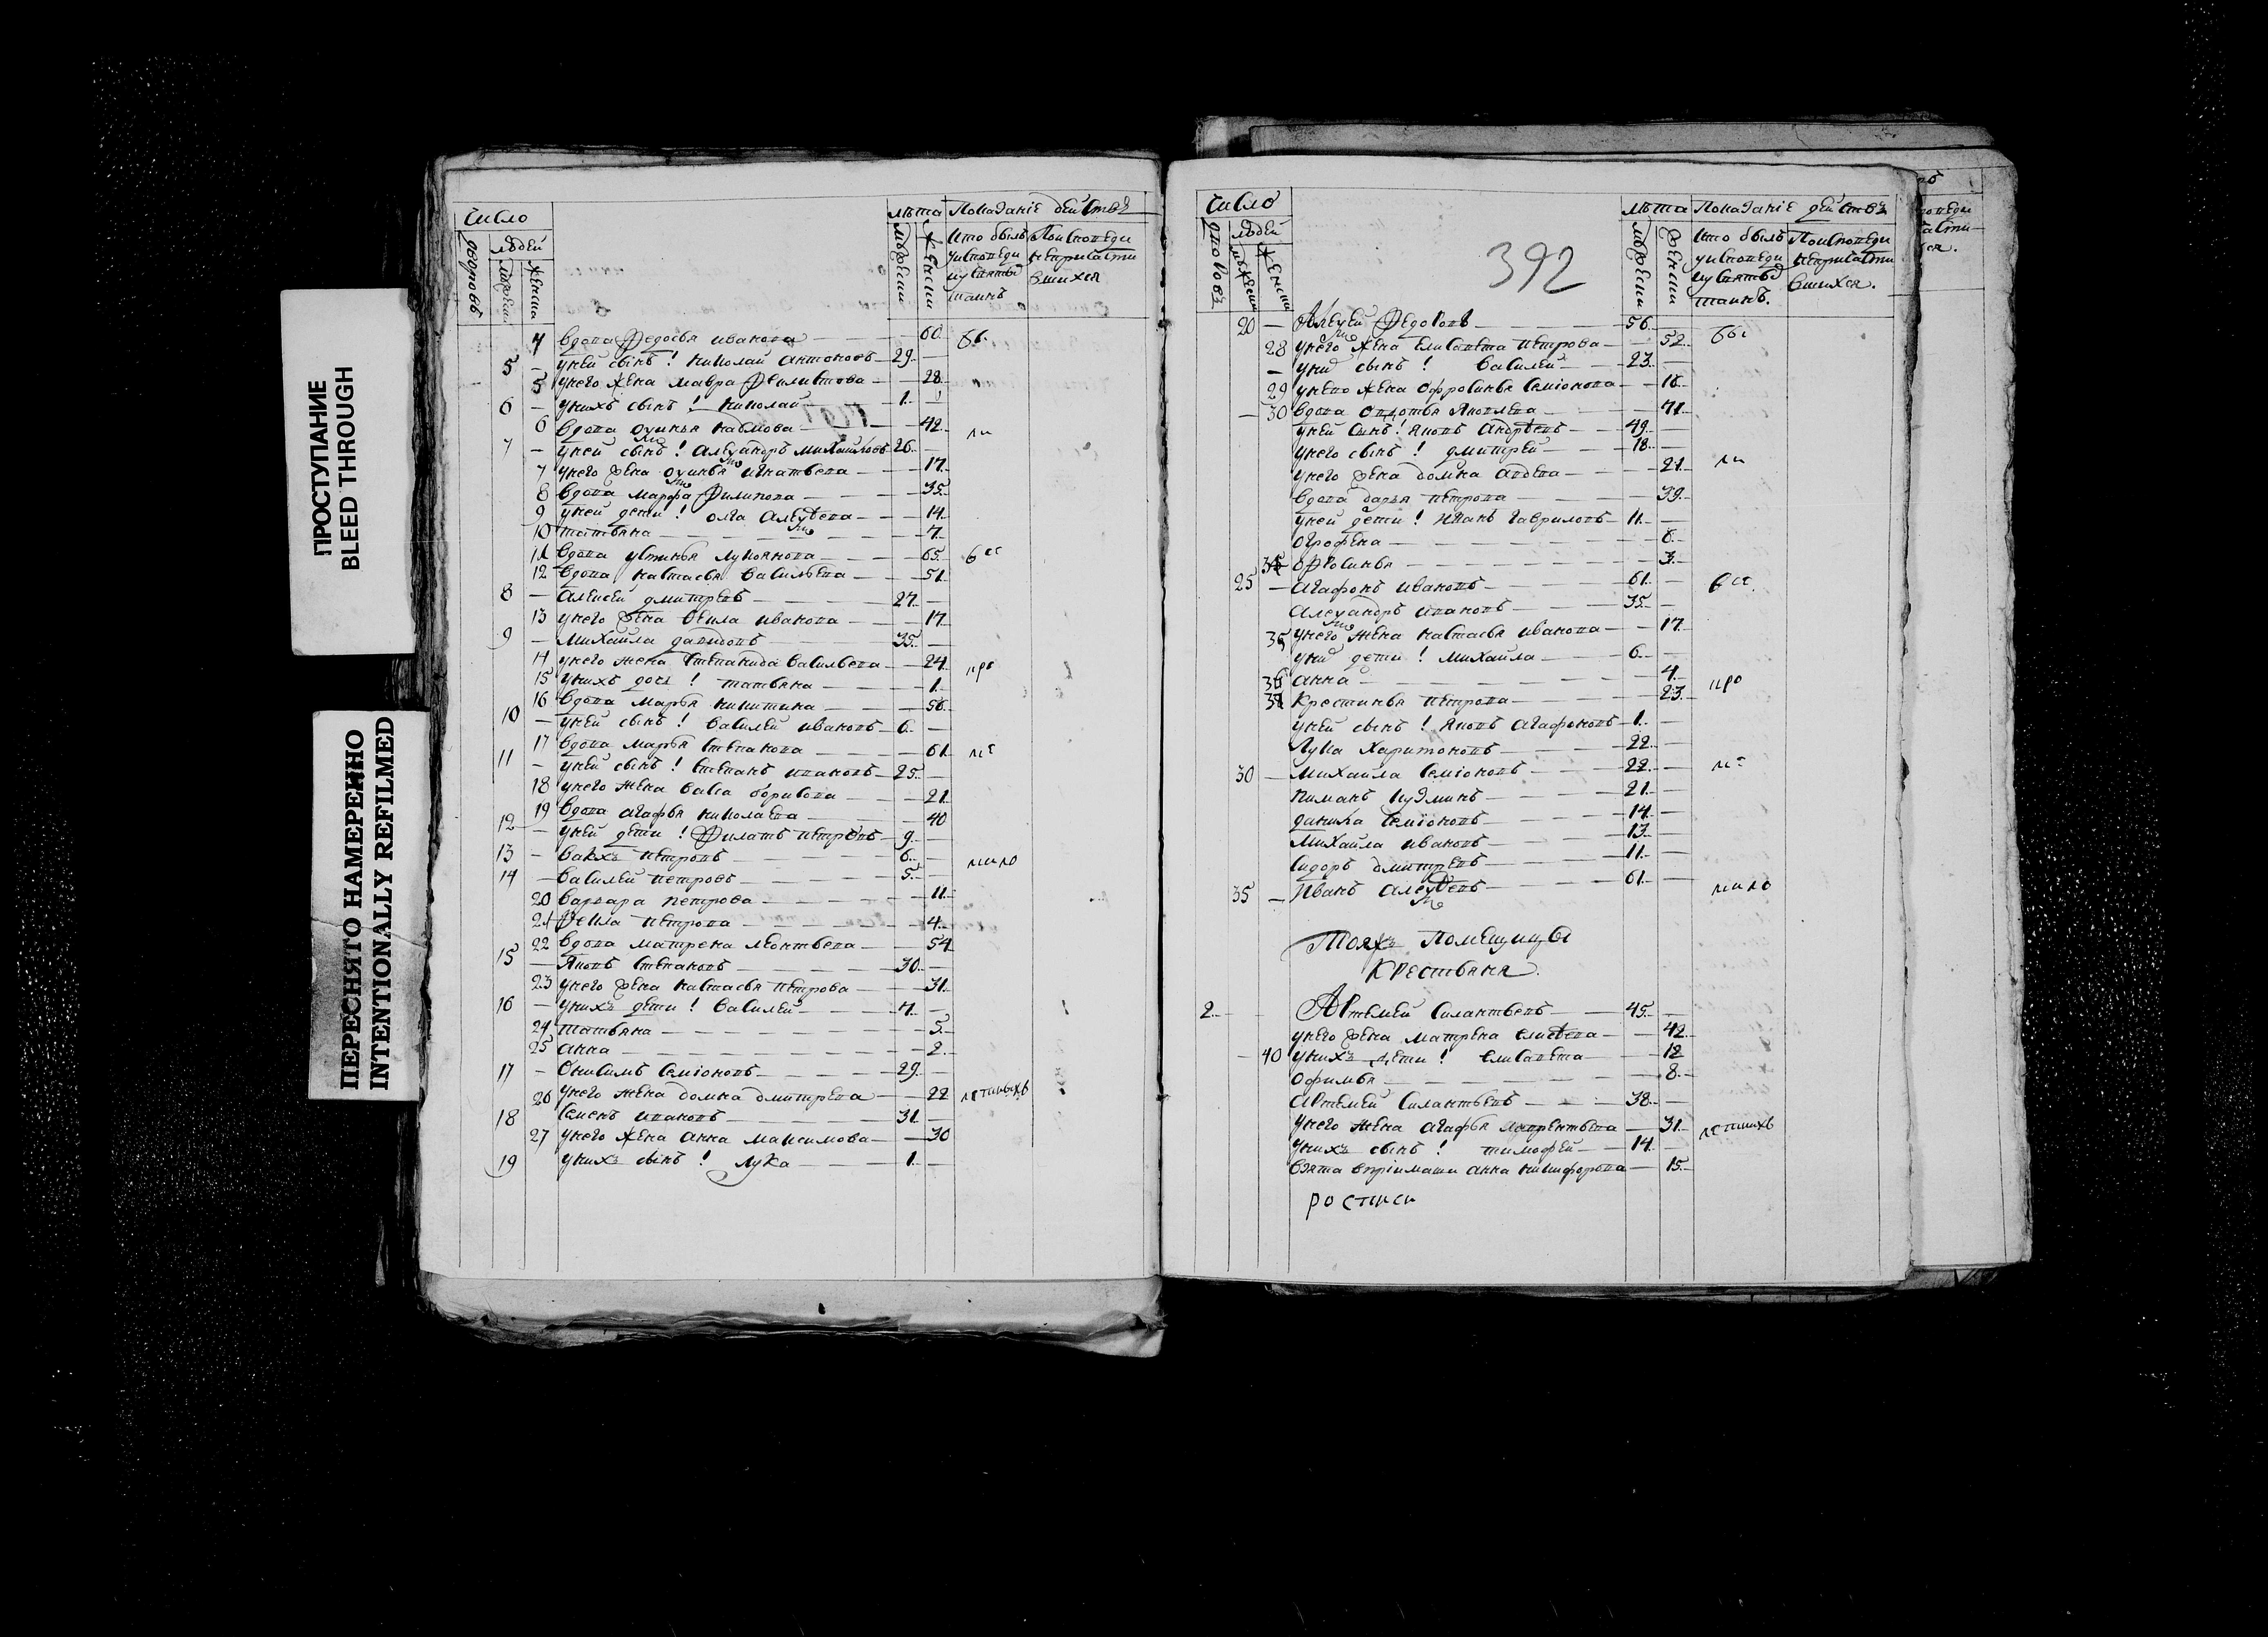 ПРОСТУПАНИЕ
BLEED THROUGH
ПЕРЕСНЯТО НАМЕРЕННО
INTENTIONALLY REFILMED
Число
дворовъ
людей
мужески
женски
лѣта
мужески
женски
Показанiе действ
кто былъ
уисповеди
исвятыхъ
таинъ
Поисповеди
неприсасти
вшихся
4 вдова Федосья иванова — 60 бы
5 — уней сынъ! николай антоновъ — 29
5 унего жена мавра — 28
6 — унихъ сынъ! николай — 1
6 вдова наумова — 42 ли
7 — уней сынъ! александръ михайловъ 26
7 унего жена игнатьева — 17
8 вдова марфа филипова — 35
9 уней дети! олга алексеева — 14
10 татьяна — 7
11 вдова устинья лукоянова — 65 все
12 вдова настасья васильева — 51
8 — алексей дмитревъ — 27
13 унего жена векла иванова — 17
9 — михайла давыдовъ — 35
14 унего жена степанида васильева — 24 про
15 унихъ дочь! татьяна — 1
16 вдова марья никитина — 56
10 — уней сынъ! василей ивановъ — 6
17 вдова марья степанова — 61
11 — уней сынъ! степанъ ивановъ — 25
18 унего жена васса борисова — 21
19 вдова агафья николаева — 40
12 — уней дети! филатъ петровъ — 9
13 — петровъ — 6
14 — василей петровъ — 5
20 варвара петрова — 11
21 фекла петрова — 4
22 вдова матрена леонтьева — 54
15 — яковъ степановъ — 30
23 унего жена настасья петрова — 31
16 — унихъ дети! василей — 7
24 татьяна — 5
25 анна — 2
17 — онисимъ семiоновъ — 29
26 унего жена домна дмитрева — 22
18 семенъ ивановъ — 31
27 унего жена анна максимова — 30
19 унихъ сынъ! лука — 1
Число
дворовъ
людей
мужески
женски
392
лѣта
мужески
женски
Показанiе действ
кто былъ
уисповеди
исвятыхъ
таинъ.
Поисповеди
неприсасти
вшихся.
20 — Алексей Федоровъ — 56 бы
28 унего жена елисавета петрова — 52
— сынъ! василей — 23
29 унего жена офросинья семiонова — 18
— 30 вдова яковлева — 71
уней сынъ! яковъ андреевъ — 49
унего сынъ! дмитрей — 18
унего жена домна авдева — 21 ли
вдова дарья петрова — 39
уней дети! иванъ гавриловъ — 11
огрофена — 6
офросинья — 3
25 — агафонъ ивановъ — 61 все
александръ ивановъ — 35
35 унего жена настасья иванова — 17
дети! михайла — 6
36 анна — 4
37 крестинья петрова — 23 про
уней сынъ! яковъ агафоновъ — 1
Лука харитоновъ — 22
30 — михайла семiоновъ — 22
кузминъ — 21
данила семiоновъ — 14
михайла ивановъ — 13
сидоръ дмитревъ — 11
35 — иванъ алексеевъ — 61
Тояжъ Помещицы
Крестьяня.
2 Артемей силантьевъ — 45
унего жена матрена елисеева — 42
— 40 унихъ дети! елисавета — 12
офимья — 8
артемей силантьевъ — 38
унего жена агафья лаврентьева — 31
унихъ сынъ! тимофей — 14
взята впрiмаши анна никифорова — 15